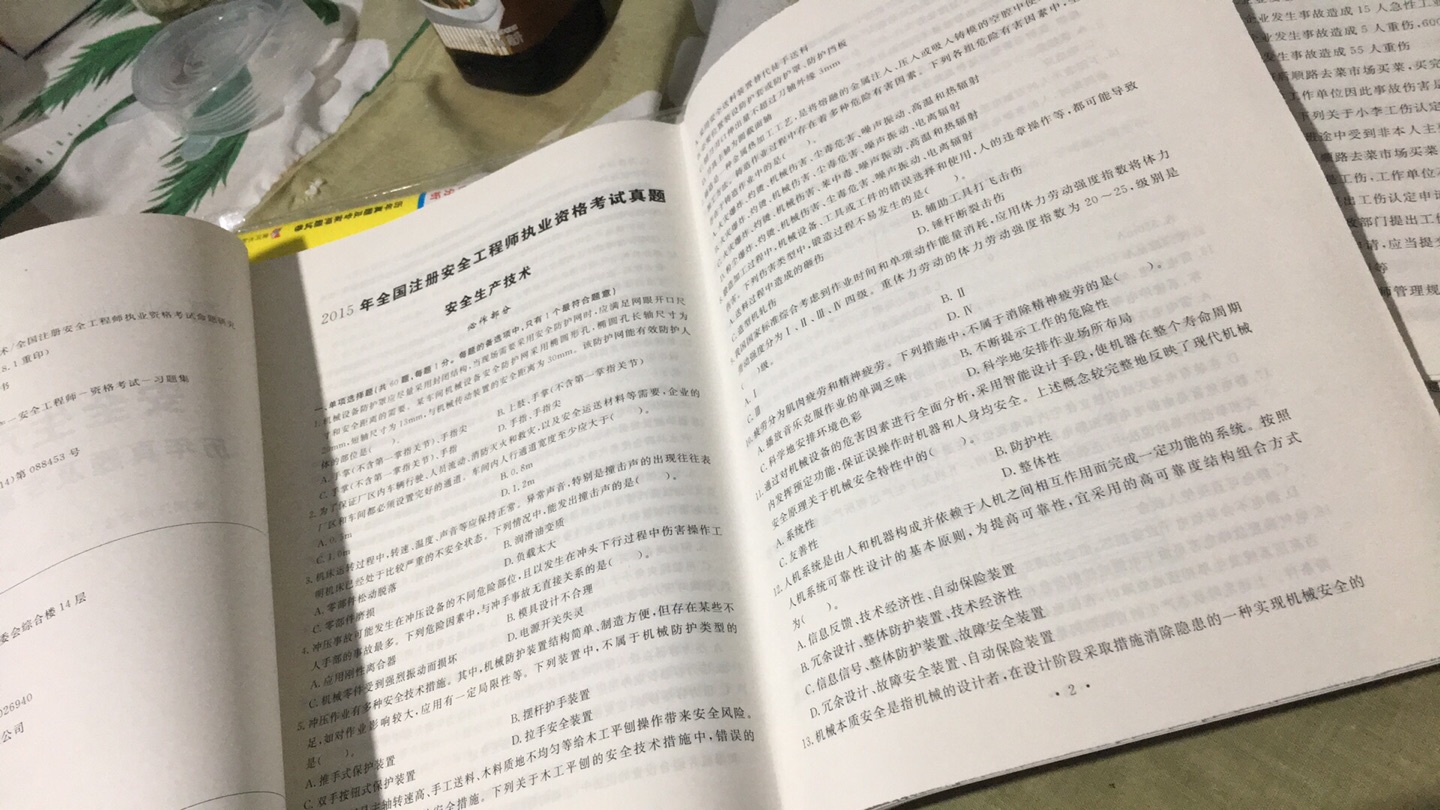 术/全国注册安全工程师执业资格考试命题研究
8.1重印)
书
一安全工程师一资格考试一习题集
14)第088453号
委会综合楼14层
026940
公司
2015年全国注册安全工程师执业资格考试真题
安全生产技术
必作部分
一、单项选择题(共60题,每题1分。每题的备选项中,只有1个最符合题意)
1.机械设备防护罩应尽量采用封闭结构,当现场需要采用安全防护网时,应满足网眼开口尺
寸和安全距离的需要。某车间机械设备安全防护网采用椭圆形孔,椭圆孔长轴尺寸为
20mm,短轴尺寸为13mm,与机械传动装置的安全距离为30mm。该防护网能有效防护人
体的部位是( )。
A.手掌(不含第一掌指关节)、手指尖
B.上肢、手掌(不含第一掌指关节)
C.手掌(不含第一掌指关节)、手指
D.手指、手指尖
2.为了保证厂区内车辆行驶、人员流动、消防灭火和救灾,以及安全运送材料等需要,企业的
厂区和车间都必须设置完好的通道。车间内人行通道宽度至少应大于( )。
A.0.5m
B.0.8m
C.1.0m
D.1.2m
3.机床运转过程中,转速、温度、声音等应保持正常。异常声音,特别是撞击声的出现往往表
明机床已经处于比较严重的不安全状态。下列情况中,能发出撞击声的是( )。
A.零部件松动脱落
B.润滑油变质
C.零部件磨损
D.负载太大
4.冲压事故可能发生在冲压设备的不同危险部位,且以发生在冲头下行过程中伤害操作工
人手部的事故最多。下列危险因素中,与冲手事故无直接关系的是( )。
A.应用刚性离合器
B.模具设计不合理
C.机械零件受到强烈振动而损坏
D.电源开关失灵
5.冲压作业有多种安全技术措施。其中,机械防护装置结构简单、制造方便,但存在某些不
足,如对作业影响较大,应用有一定局限性等。下列装置中,不属于机械防护类型的
是( )。
A.推手式保护装置
B.摆杆护手装置
C.双手按钮式保护装置
D.拉手安全装置
主轴转速高、手工送料、木料质地不均匀等给木工平刨操作带来安全风险。
安全措施。下列关于木工平刨的安全技术措施中,错误的
送料装置替代徒手送料
防护套或防护罩、防护挡板
刀轴外缘3mm
是一种金属热加工工艺,是将熔融的金属注入、压人或吸入铸模的空腔中使
铸造作业过程中存在着多种危险有害因素。下列各组危险有害因素中,
铸造作业中的是( )。
A.火灾爆炸、灼烫、机械伤害、尘毒危害、噪声振动、高温和热辐射
B.火灾爆炸、灼烫、机械伤害、尘毒危害、噪声振动、电离辐射
C.火灾爆炸、灼烫、机械伤害、苯中毒、噪声振动、高温和热辐射
D.粉尘爆炸、灼烫、机械伤害、尘毒危害、噪声振动、电离辐射
8.锻造加工过程中,机械设备、工具或工件的错误选择和使用,人的违章操作等,都可能导致
伤害。下列伤害类型中,锻造过程不易发生的是( )。
A.送料过程中造成的砸伤
B.辅助工具打飞击伤
C.造型机轧伤
D.锤杆断裂击伤
9.我国国家标准综合考虑到作业时间和单项动作能量消耗,应用体力劳动强度指数将体力
劳动强度分为Ⅰ、Ⅱ、Ⅲ、Ⅳ四级。重体力劳动的体力劳动强度指数为20~25,级别是
( )级。
A.Ⅰ
B.Ⅱ
C.Ⅲ
D.Ⅳ
10.疲劳分为肌肉疲劳和精神疲劳。下列措施中,不属于消除精神疲劳的是( )。
A.播放音乐克服作业的单调乏味
B.不断提示工作的危险性
C.科学地安排环境色彩
D.科学地安排作业场所布局
11.通过对机械设备的危害因素进行全面分析,采用智能设计手段,使机器在整个寿命周期
内发挥预定功能,保证误操作时机器和人身均安全。上述概念较完整地反映了现代机械
安全原理关于机械安全特性中的( )。
A.系统性
B.防护性
C.友善性
D.整体性
12.人机系统是由人和机器构成并依赖于人机之间相互作用而完成一定功能的系统。按照
人机系统可靠性设计的基本原则,为提高可靠性,宜采用的高可靠度结构组合方式
为( )。
A.信息反馈、技术经济性、自动保险装置
B.冗余设计、整体防护装置、技术经济性
C.信息信号、整体防护装置、故障安全装置
D.冗余设计、故障安全装置、自动保险装置
13.机械本质安全是指机械的设计者,在设计阶段采取措施消除隐患的一种实现机械安全的
·2·
企业发生事故造成15人急性工业
企业发生事故造成5人重伤,600
发生事故造成55人重伤
顺路去菜市场买菜,买完
工作单位因此事故伤害是
下列关于小李工伤认定
班途中受到非本人主要
顺路去菜市场买菜
是工伤,工作单位不
出工伤认定申请
部门提出工伤
请,应当提交
等
师管理规